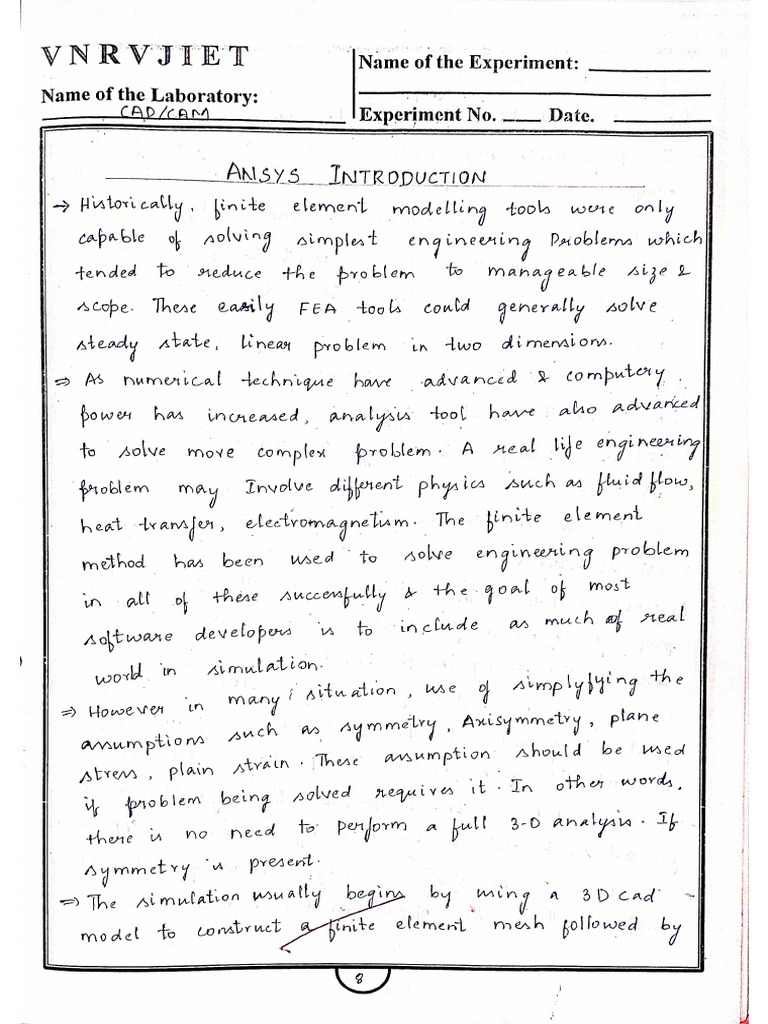 VNRVJIET
Name of the Laboratory:
CAD/CAM
Name of the Experiment:
Experiment No. Date.
ANSYS INTRODUCTION
→ Historically, finite element modelling tools were only
capable of solving simplest engineering Problems which
tended to reduce the problem to manageable size &
scope. These easily FEA tools could generally solve
steady state, linear problem in two dimensions.
⇒ As numerical technique have advanced & computery
power has increased, analysis tool have also advanced
to solve move complex problem. A real life engineering
problem may Involve different physics such as fluid flow,
heat transfer, electromagnetism. The finite element
method has been used to solve engineering problem
in all of these successfully & the goal of most
software developers is to include as much of real
world in simulation.
⇒ However in many situation, use of simplyfying the
assumptions such as symmetry, Axisymmetry, plane
stress, plain strain. These assumption should be used
if problem being solved requires it. In other words,
there is no need to perform a full 3-D analysis. If
symmetry is present.
⇒ The simulation usually begins by using a 3D cad
model to construct a finite element mesh followed by
8